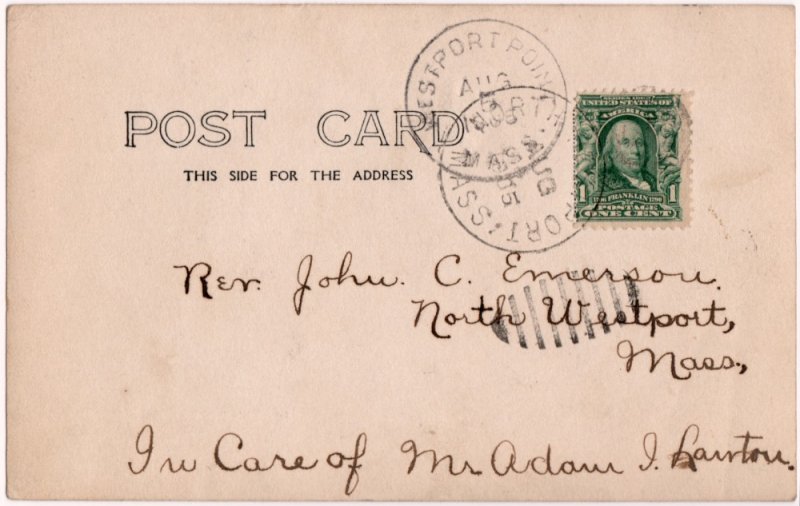 WESTPORT POINT
AUG
5
MASS
POST CARD
THIS SIDE FOR THE ADDRESS
MASS.
AUG
SERIES 1902
UNITED STATES OF
AMERICA
1 1
1706 FRANKLIN 1790
POSTAGE
ONE CENT
Rev. John. C. Emerson.
North Westport,
Mass.,
In Care of Mr Adam I. Lawton.